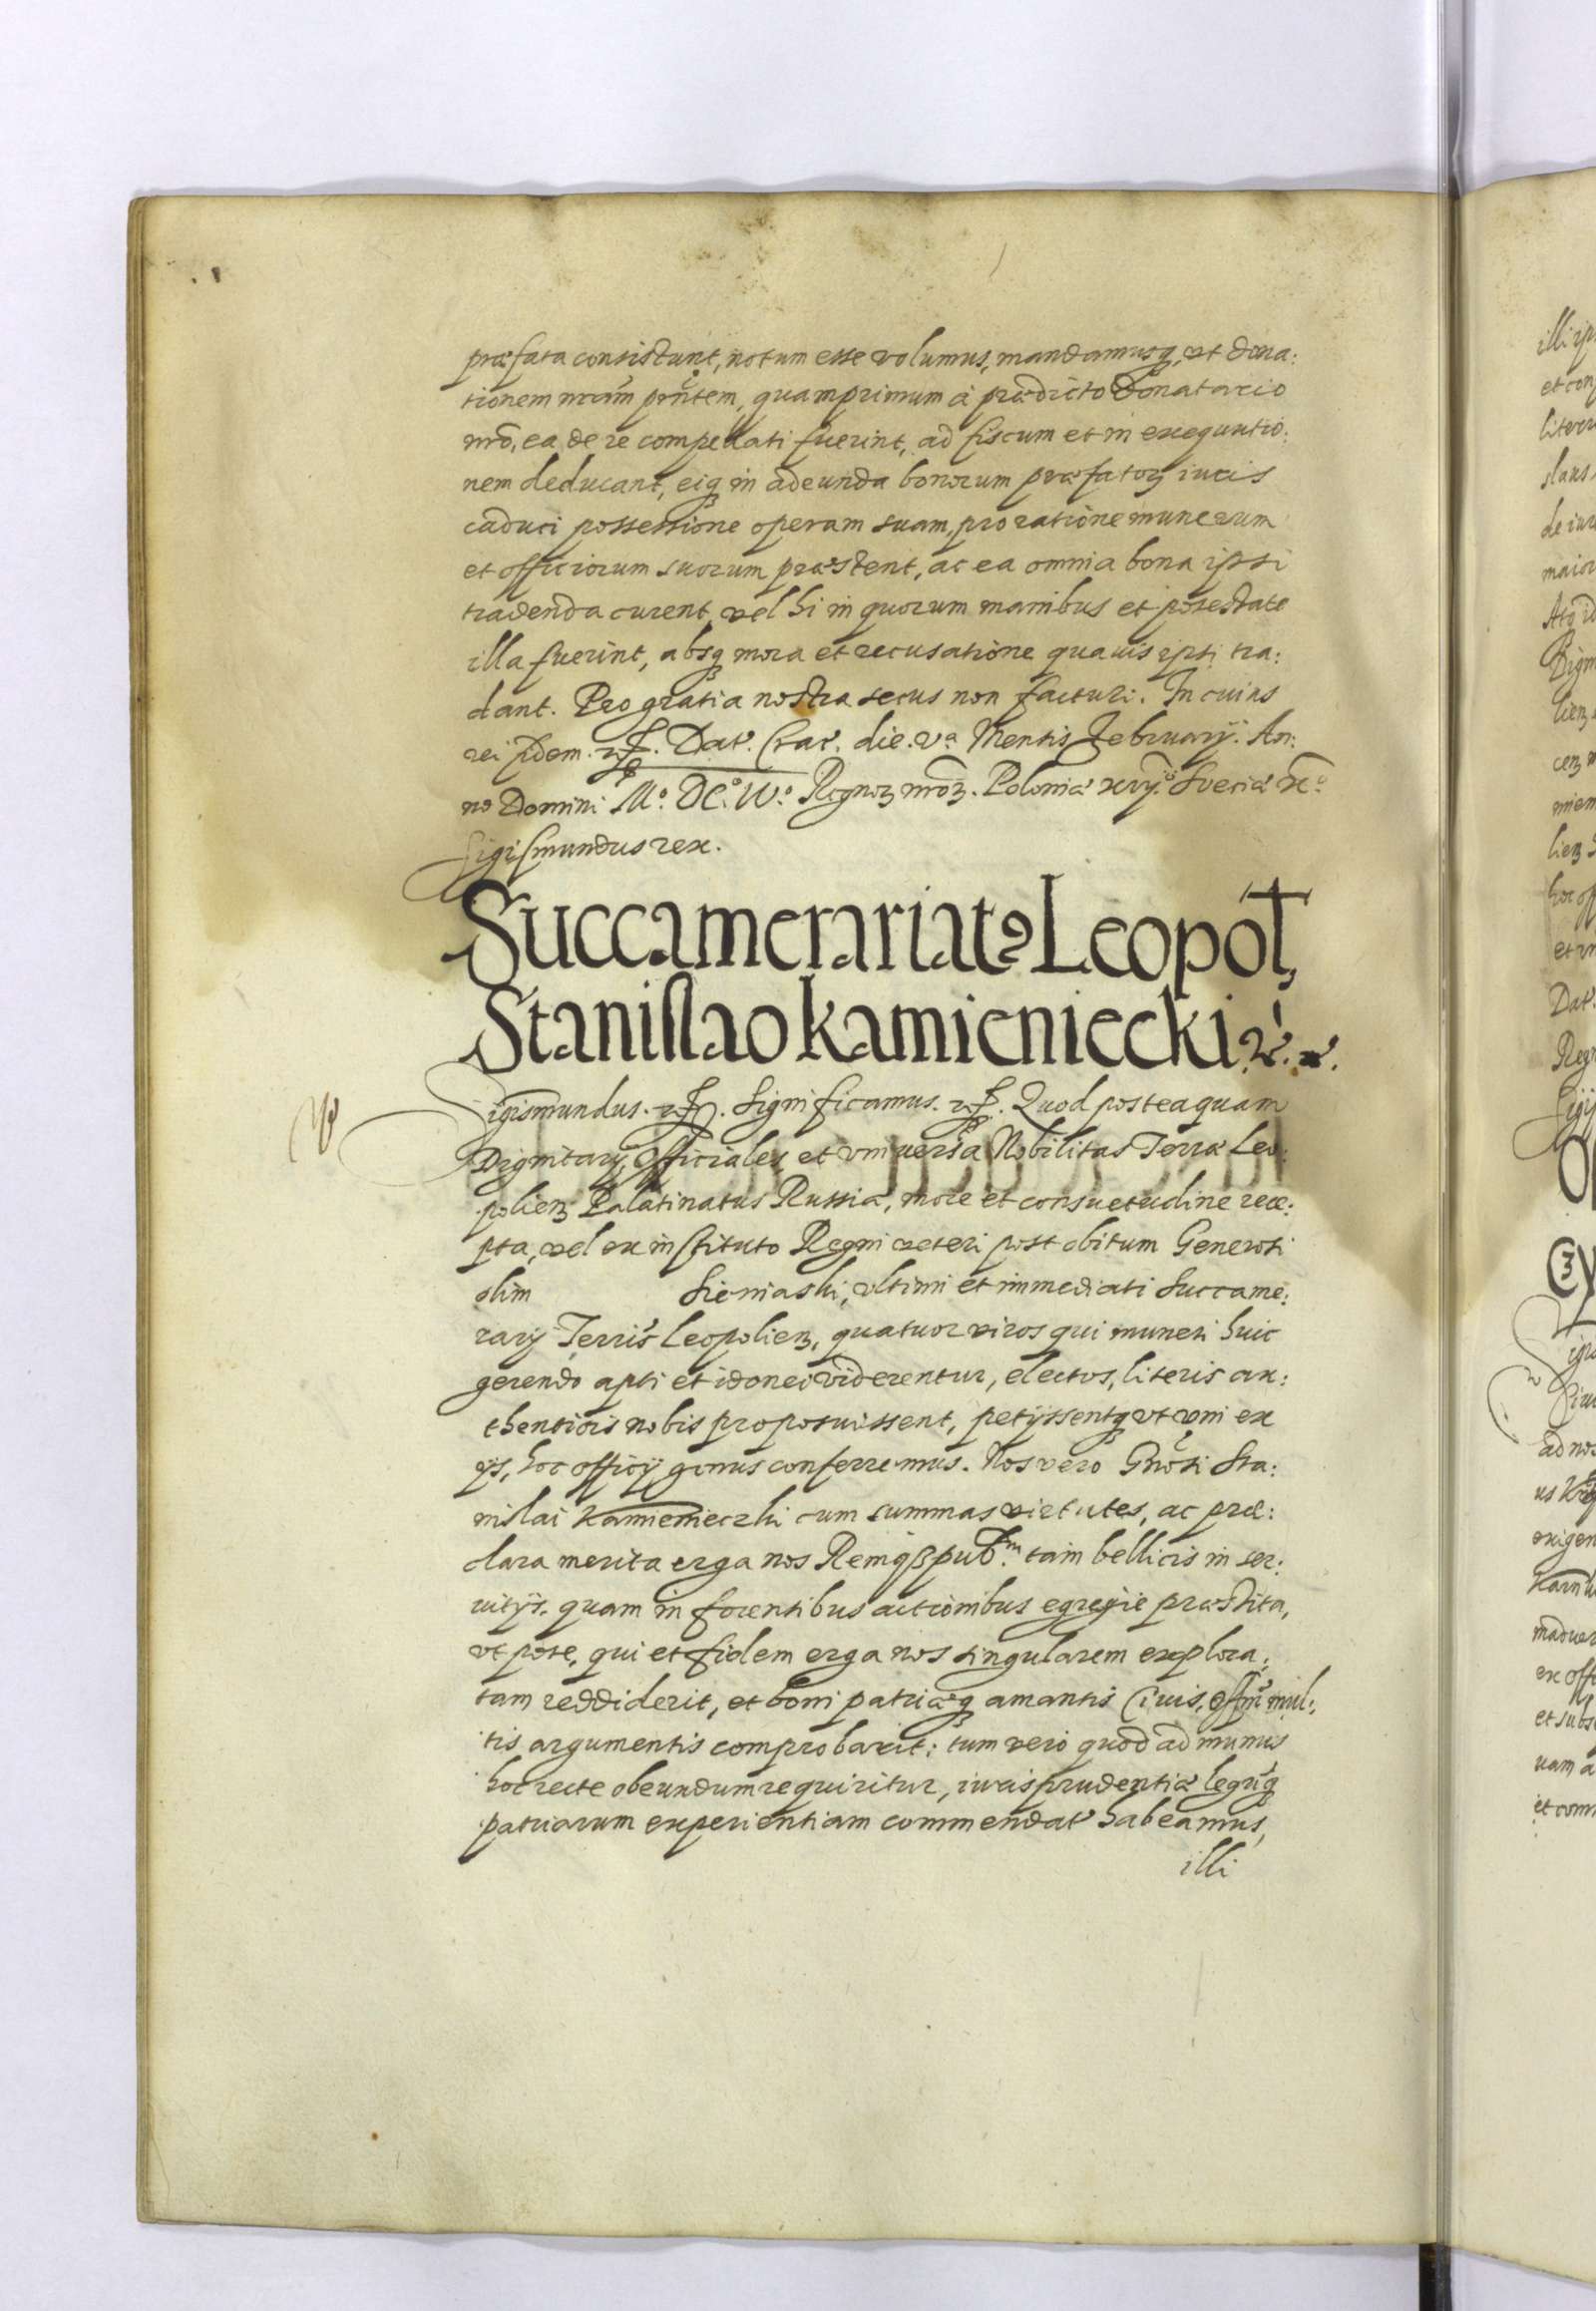 præfata consistunt, notum esse volumus, mandamusq, vt dona:
tionem nrãm pñtem, quamprimum à prædicto Donatario
nrõ, ea de re compellati fuerint, ad fiscum et in exequutio:
nem deducant, eiq in adeunda bonorum præfatoꝝ iuris
caduci possessione operam suam, pro ratione munerum
et officiorum suorum præstent, ac ea omnia bona ipsi
tradenda curent, vel hi in quorum manibus et potestate
illa fuerint, absq mora et recusatione quauis ipsi tra:
dant. Pro gratia nostra secus non facturi. In cuius
rei fidem. Dat. Crac. die. va. Mensis February. An:
no Domini Mo. DCo. Regnoꝝ nrõꝝ. Poloniæ xvijo. Sueciæ xo
Sigismundus rex.
Succamerariatꝯ Leopol,
Stanislao Kamieniecki
Sigismundus. Significamus. Quod posteaquam
Dignitarij, Officiales, et vniuersa Nobilitas Terræ Leo:
polienꝫ Palatinatus Russiæ, more et consuetudine rece:
pta, vel ex instituto Regni veteri post obitum Generosi
olim Sieniaski, vltimi et immediati Succame:
rarij Terris Leopolienꝫ, quatuor viros qui muneri huic
gerendo apti et idonei viderentur, electos, literis au:
thenticis nobis proposuissent, petijssentq vt vni ex
ijs, hoc officij genus conferremus. Nos vero Gnõsi Sta:
nislai Kamienieczki cum summas virtutes, ac præ:
clara merita erga nos Remqꝫ pubm. tam bellicis in ser:
uitijs. quam in forensibus actionibus egregie præstita,
vt pote, qui et fidem erga nos singularem explora:
tam reddiderit, et boni patriæq amantis Ciuis, mul:
tis argumentis comprobarit; tum vero quod ad munus
hoc recte obeundum requiritur, iurisprudentiæ legũq
patriarum experientiam commendat habeamus,
illi